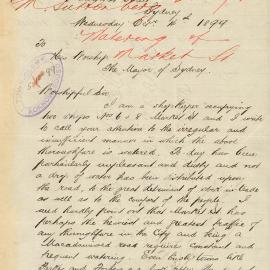 M. Sutton
Sydney
Wednesday Oct 4th 1899
Watering of
To
His Worship Market St
The Mayor of Sydney
Worshipful Sir
I am a shopkeeper occupying
two shops Nos 6 & 8 Market St and I write
to call your attention to the irregular and
insufficient manner in which the above
thoroughfare is watered. To day has been
particularly unpleasant and dusty and not
a drop of water has been distributed upon
the road, to the great detriment of stock in trade
as well as to the comfort of the people. I
need hardly point out that Market St has
perhaps the heaviest and greatest traffic of
any thoroughfare in the City and being a
Macadamised road require constant and
frequent watering.